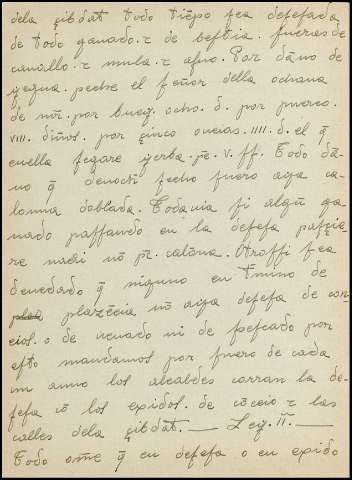 dela çibdat todo tiẽpo sea defesada
de todo ganado. τ de bestia. fueras de
cauallo. τ mula. τ asno. Por dãno de
yegua. peche el señor della ochaua
de mr̃. por buey. ocho. d. por puerco.
VIII. dĩnos. por çinco oueias. IIII. d. el q̃
enella segare yerba. pẽ. v. ss. Todo dã-
no q̃ denoch fecho fuere aya ca-
lonna doblada. Todauia si algũ ga-
nado passando en la defesa pasçie-
re nadi nõ pr̃. calõna. Otrossi sea
deuedado q̃ ninguno en tẽrmino de
plazẽcia nõ aya defesa de con-
eios. o de uenado ni de pescado por
esto mandamos por fuero de cada
un anno los alcaldes corran la de-
fesa cõ los exidos. de cõceio τ las
calles dela çibdat. — Ley. II. —
Todo om̃e q̃ en defesa o en exido